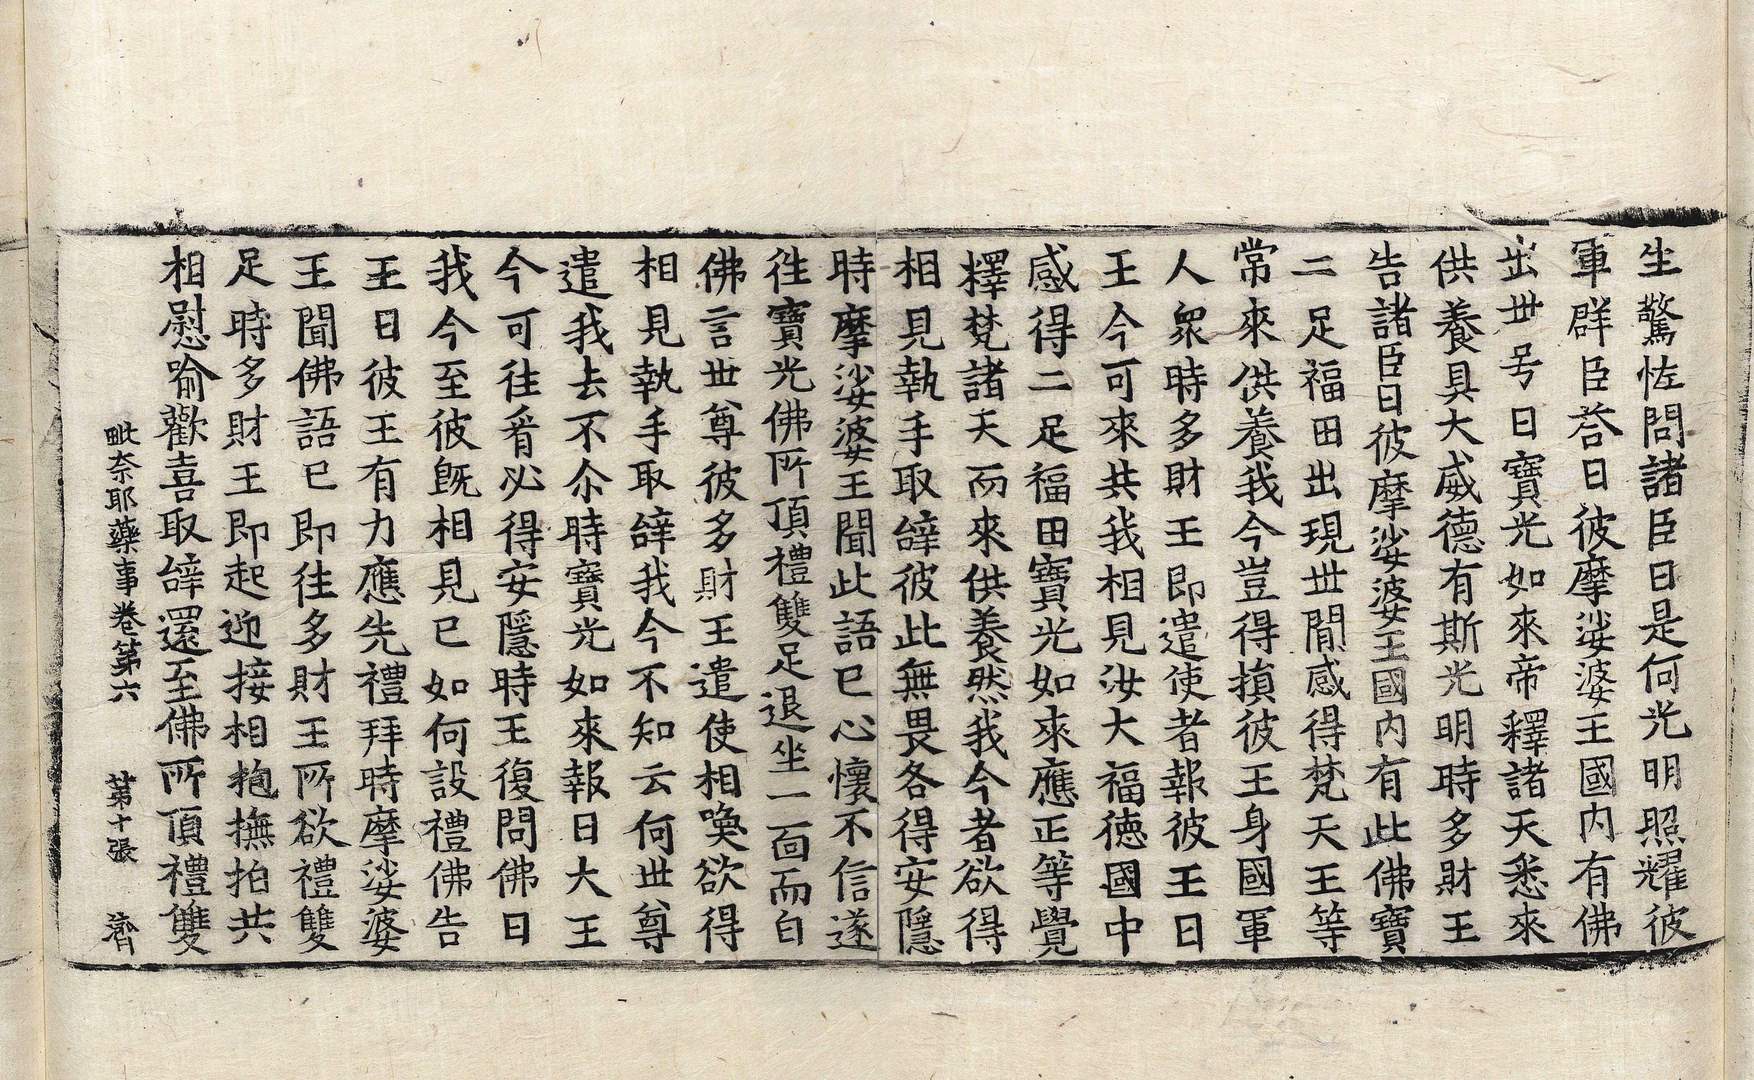 生驚怪問諸臣曰是何光明照耀彼
軍群臣荅曰彼摩娑婆王國内有佛
出丗号曰寶光如來帝釋諸天悉來
供養具大威德有斯光明時多財王
告諸臣曰彼摩娑婆王國内有此佛寶
二足福田出現丗閒感得梵天王等
常來供養我今豈得損彼王身國軍
人衆時多財王即遣使者報彼王曰
王今可來共我相見汝大福德國中
感得二足福田寶光如來應正等覺
釋梵諸天而來供養然我今者欲得
相見執手取辤彼此無畏各得安隱
時摩娑婆王聞此語已心懷不信遂
徃寶光佛所頂禮雙足退坐一面而白
佛言丗尊彼多財王遣使相喚欲得
相見執手取辤我今不知云何丗尊
遣我去不尒時寶光如來報曰大王
今可往看必得安隱時王復問佛曰
我今至彼旣相見已如何設禮佛告
王曰彼王有力應先禮拜時摩娑婆
王聞佛語已即往多財王所欲禮雙
足時多財王即起迎接相抱撫拍共
相慰喻歡喜取辤還至佛所頂禮雙
毗奈耶藥事卷第六　第十張　濟